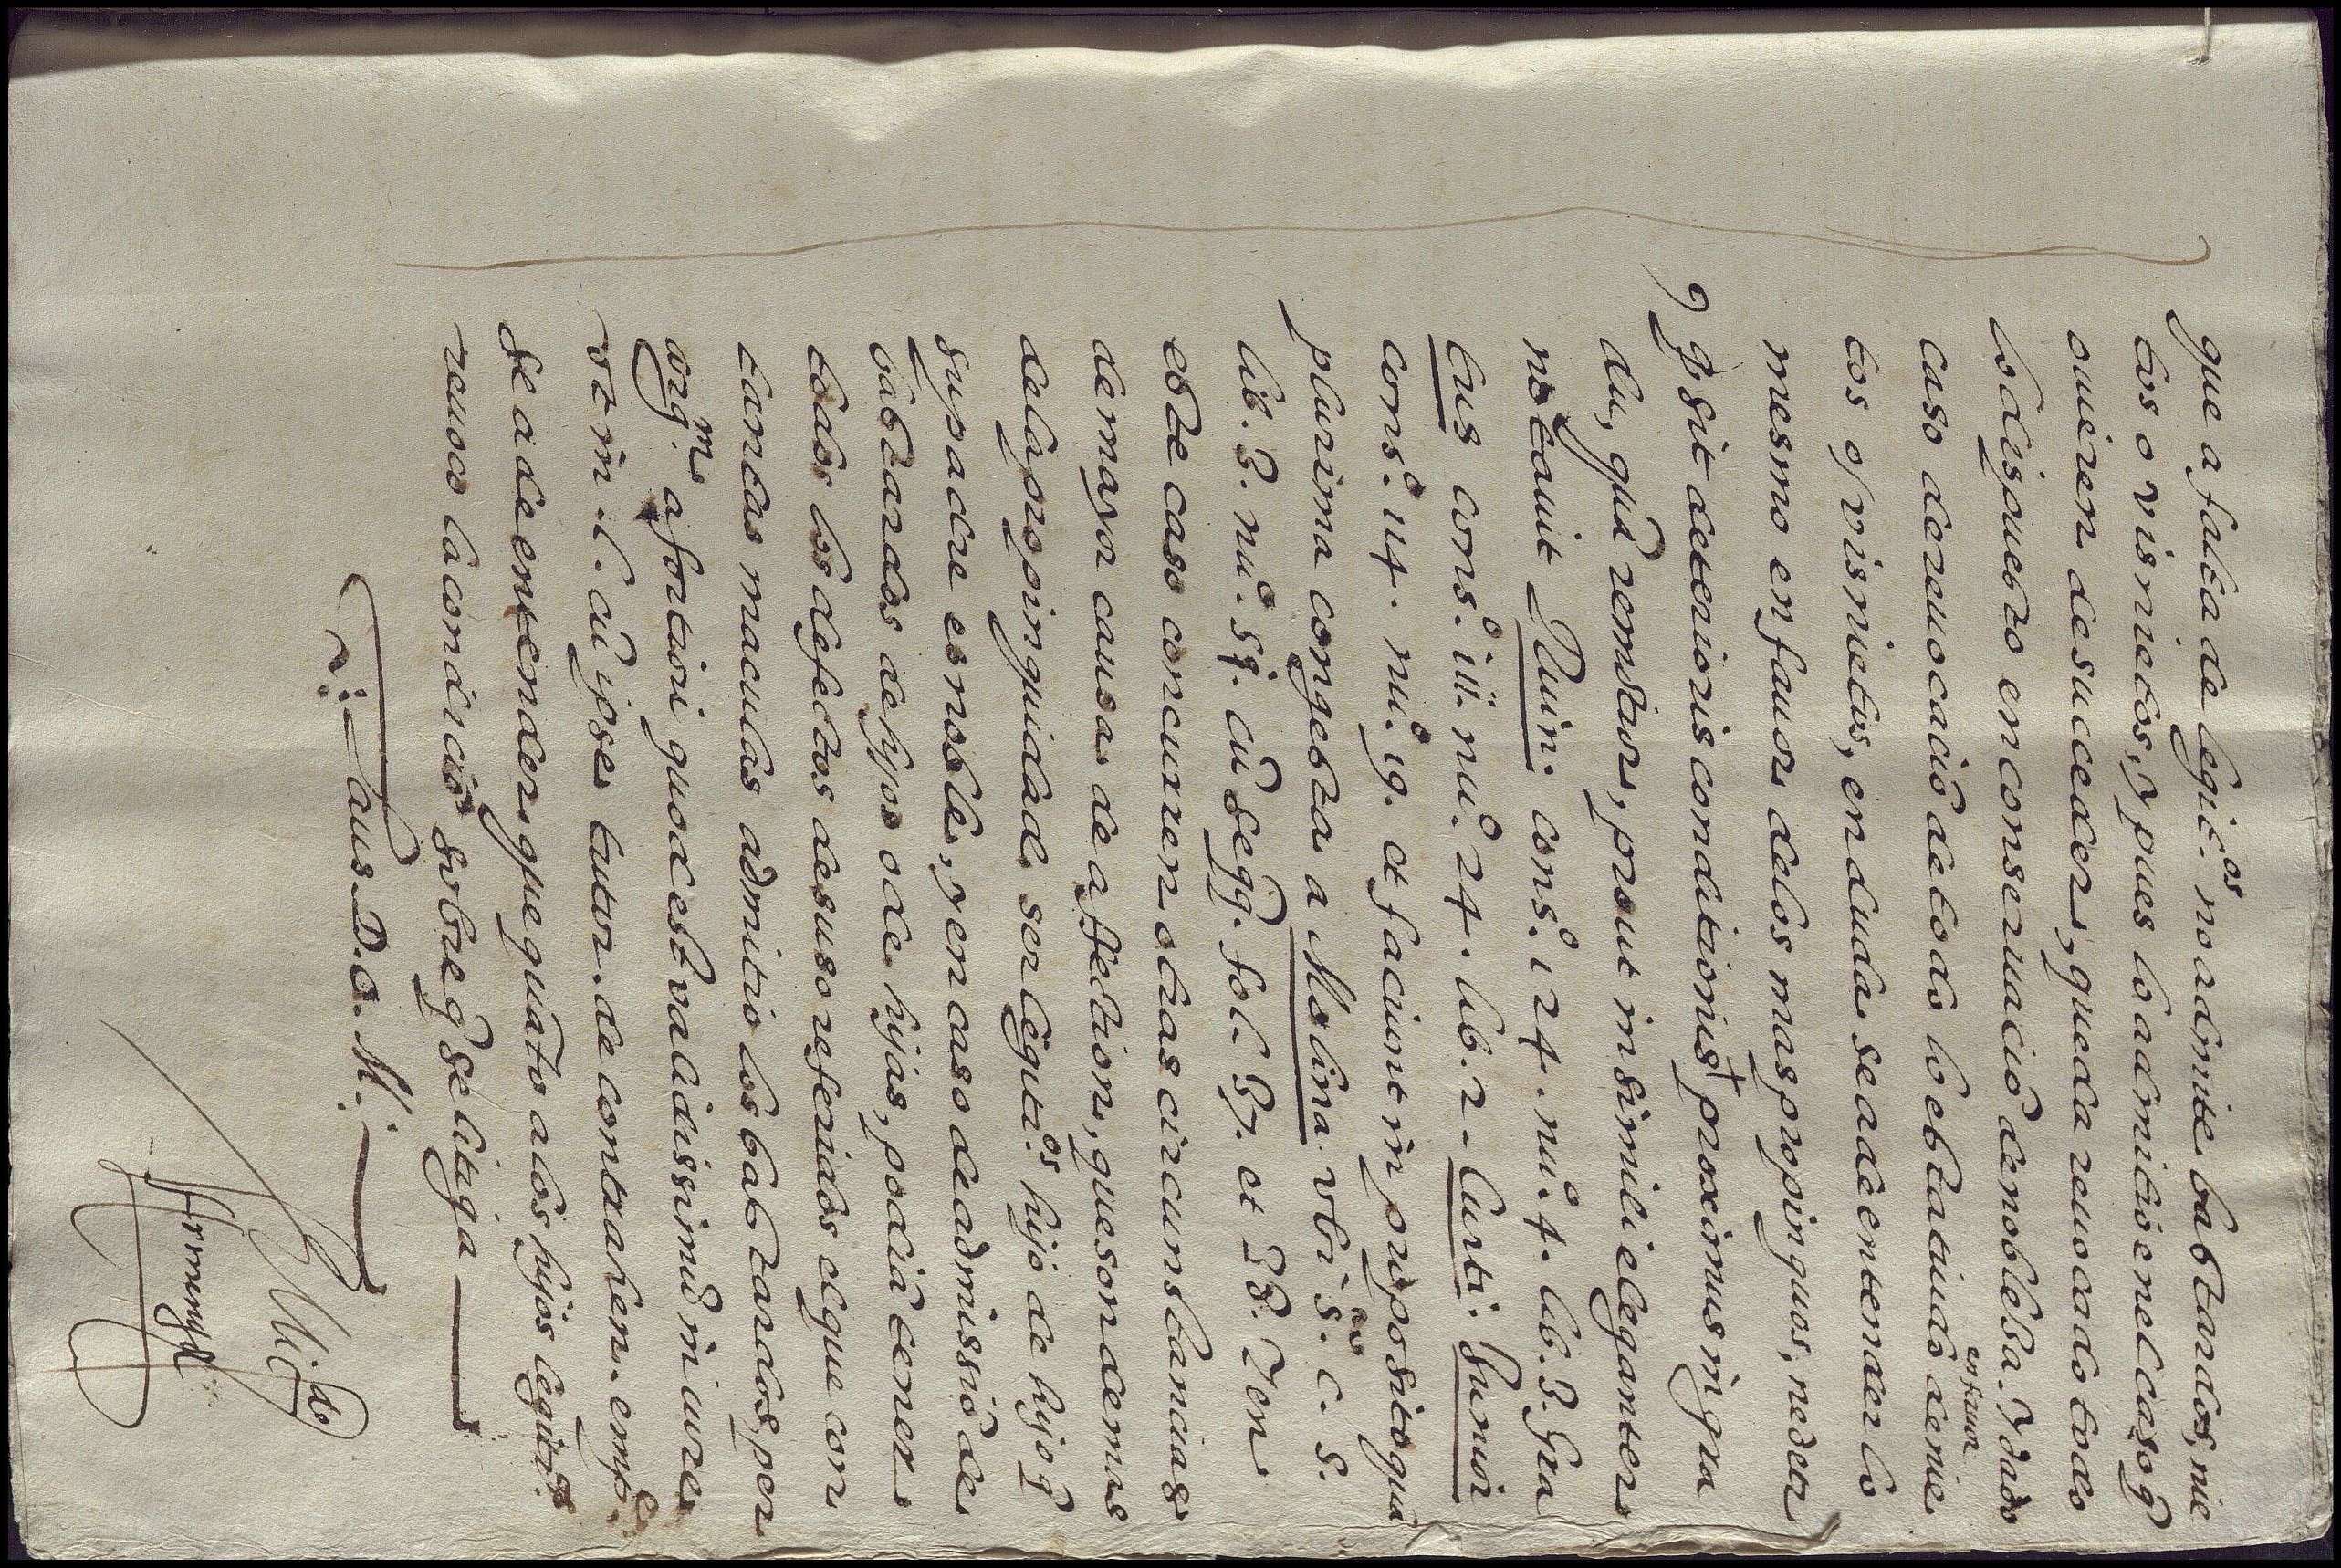 que a falta de legit.os no admite bastardos, nie
tos o visnietos, y pues lo admitio en el caso q̃
ouieren de suceder, queda reuocado todo
lo dispuesto en conseruaciõ de nobleza. Y dado
caso de reuocaciõ de todo lo estatuido
en fauor
de nie
tos o visnietos, en duda se a de entender lo
mesmo en fauor de los mas propinquos, ne
q̃ sit deterioris conditionis + proximus in gra
du, quã remotior, prout in simili eleganter
notauit Ruin. cons.o 124. nu.o 4. lib. 3. Gra
tus cons.o iii. nu.o 24. lib. 2 - Curti. Junior
cons.o 114. nu.o 19. et faciunt in proposito quã
plurima congesta a Molina vbi s. c. s.
lib. 3. nu.o 59. cũ seqq. fol. 37. et 38. Y en
este caso concurren otras circunstancias
de mayor causa de affection, que son de mas
de la propinquidad ser legiti.os hijo de hijo q̃
su padre es noble, y en caso de admissiõ de
bastardos de hijos o de hijas, podiã tener
todos los defectos de suso referidos el que con
tantas maculas admitio los bastardos, per
arg.m a fortiori quod est validissimũ in iure
vt in l. cũ ipse tutor. de contrahen. emp.e
Se a de entender que quãto a los hijos legiti.os
reuoco la condiciõ sobre q̃ se litiga
Laus D. O. M.